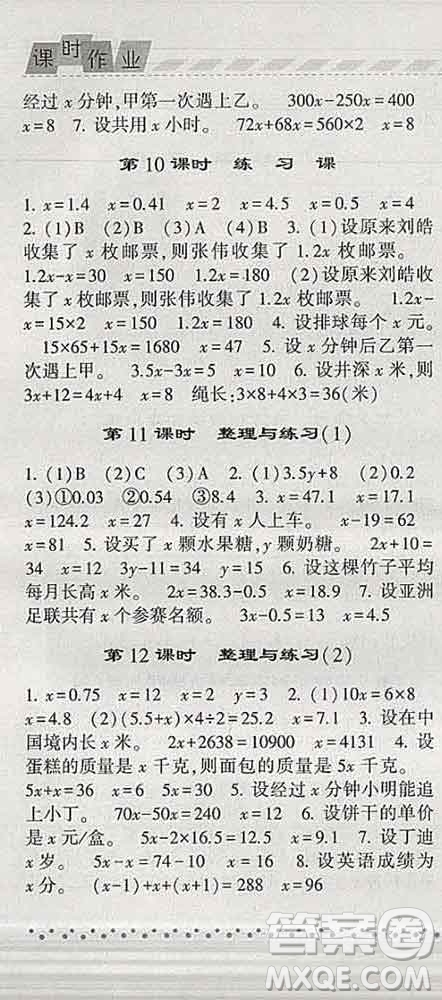 课时作业
经过 x 分钟,甲第一次遇上乙。 300x-250x=400
x=8 7. 设共用 x 小时。 72x+68x=560×2 x=8
第 10 课时 练 习 课
1. x=1.4 x=0.41 x=2 x=4.5 x=0.5 x=4
2. (1)B (2)B (3)A (4)B 3. (1)设原来刘皓
收集了 x 枚邮票,则张伟收集了 1.2x 枚邮票。
1.2x-x=30 x=150 1.2x=180 (2)设原来刘皓收
集了 x 枚邮票,则张伟收集了 1.2x 枚邮票。 1.2x-
x=15×2 x=150 1.2x=180 4. 设排球每个 x 元。
15×65+15x=1680 x=47 5. 设 x 分钟后乙第一
次遇上甲。 3.5x-3x=5 x=10 6. 设井深 x 米,则
3x+12=4x+4 x=8 绳长:3×8+4×3=36(米)
第 11 课时 整理与练习(1)
1. (1)B (2)C (3)A 2. (1)3.5y+8 (2)0.2
(3)①0.03 ②0.54 ③8.4 3. x=47.1 x=17.1
x=124.2 x=27 4. 设有 x 人上车。 x-19=62
x=81 5. 设买了 x 颗水果糖,y 颗奶糖。 2x+10=
34 x=12 3y-11=34 y=15 6. 设这棵竹子平均
每月长高 x 米。 2x=38.3-0.5 x=18.9 7. 设亚洲
足联共有 x 个参赛名额。 3x-0.5=13 x=4.5
第 12 课时 整理与练习(2)
1. x=0.75 x=12 x=2 y=3 2. (1)10x=6×8
x=4.8 (2)(5.5+x)×4÷2=25 x=7.1 3. 设在中
国境内长 x 米。 2x+2638=10900 x=4131 4. 设
蛋糕的质量是 x 千克,则面包的质量是 5x 千克。
5x+x=36 x=6 5x=30 5. 设经过 x 分钟小明能追
上小丁。 70x-50x=240 x=12 6. 设饼干的单价
是 x 元/盒。 5x-2×16.2=12.5 x=8.98 7. 设丁迪
x 岁。 5x-x=74-10 x=16 8. 设英语成绩为
x 分。 (x-1)+x+(x+1)=288 x=96
答案圈
MXQE.COM